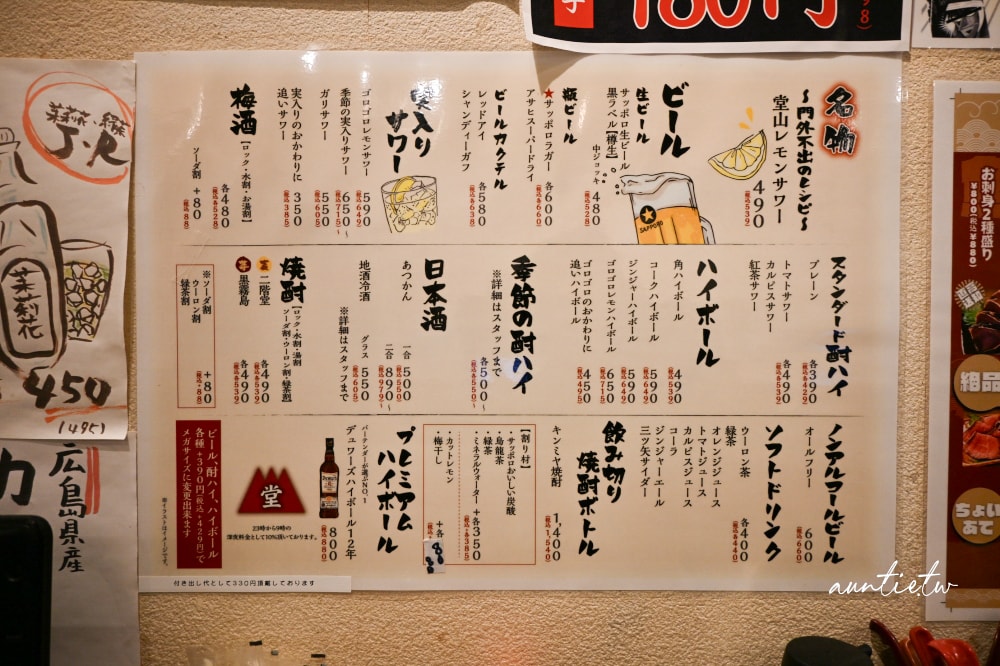 名物
〜門外不出のレシピ〜
堂山レモンサワー 490
(税込539)
ビール
生ビール
サッポロ生ビール
黒ラベル【樽生】
中ジョッキ 480
(税込528)
瓶ビール
★サッポロラガー
アサヒスーパードライ
各600
(税込各660)
ビールカクテル
レッドアイ
シャンディーガフ
各580
実入りサワー
ゴロゴロレモンサワー 590
(税込649)
季節の実入りサワー 650〜
(税込715)〜
ガリサワー 550
(税込605)
実入りのおかわりに
追いサワー 350
(税込385)
梅酒
【ロック・水割・お湯割】
各480
(税込各528)
ソーダ割 +80
(税込88)
SAPPORO
スタンダード酎ハイ
プレーン 各390
(税込各429)
トマトサワー
カルピスサワー
紅茶サワー
各490
(税込各539)
ハイボール
角ハイボール 490
(税込539)
コークハイボール 590
(税込649)
ジンジャーハイボール 590
(税込649)
ゴロゴロレモンハイボール 650
(税込715)
ゴロゴロのおかわりに
追いハイボール 450
(税込495)
季節の酎ハイ
※詳細はスタッフまで
各500〜
(税込各550)〜
日本酒
あつかん
一合 500
(税込550)
二合 890〜
(税込979)〜
地酒冷酒
グラス 550
(税込605)
※詳細はスタッフまで
焼酎
【ロック・水割・湯割
ソーダ割・ウーロン割・緑茶割】
麦 二階堂 各490
(税込各539)
芋 黒霧島 各490
(税込各539)
※ソーダ割
ウーロン割
緑茶割
+80
(税込+88)
ノンアルコールビール
オールフリー 600
(税込660)
ソフトドリンク
ウーロン茶
緑茶
オレンジジュース
トマトジュース
カルピスジュース
コーラ
ジンジャーエール
三ツ矢サイダー
各400
(税込各440)
飲み切り
焼酎ボトル
キンミヤ焼酎 1,400
(税込1,540)
【割り材】
・サッポロおいしい炭酸
・烏龍茶
・緑茶
・ミネラルウォーター
+各350
(税込各385)
・カットレモン
・梅干し
+各
プレミアム
ハイボール
バーテンダーが選ぶNO.1
デュワーズハイボール12年 800
(税込880)
堂
23時から9時の
深夜料金として10%頂いております。
ビール、酎ハイ、ハイボール
各種+390円(税込+429円)で
メガサイズに変更出来ます
※イラストはイメージです。
付き出し代として330円頂戴しております
180円
茉莉花・緑茶
J・R
茉莉花
450
(495)
広島県産
お刺身2種盛り
¥800(税込¥880)
絶品
ちょい
あて
auntie.tw